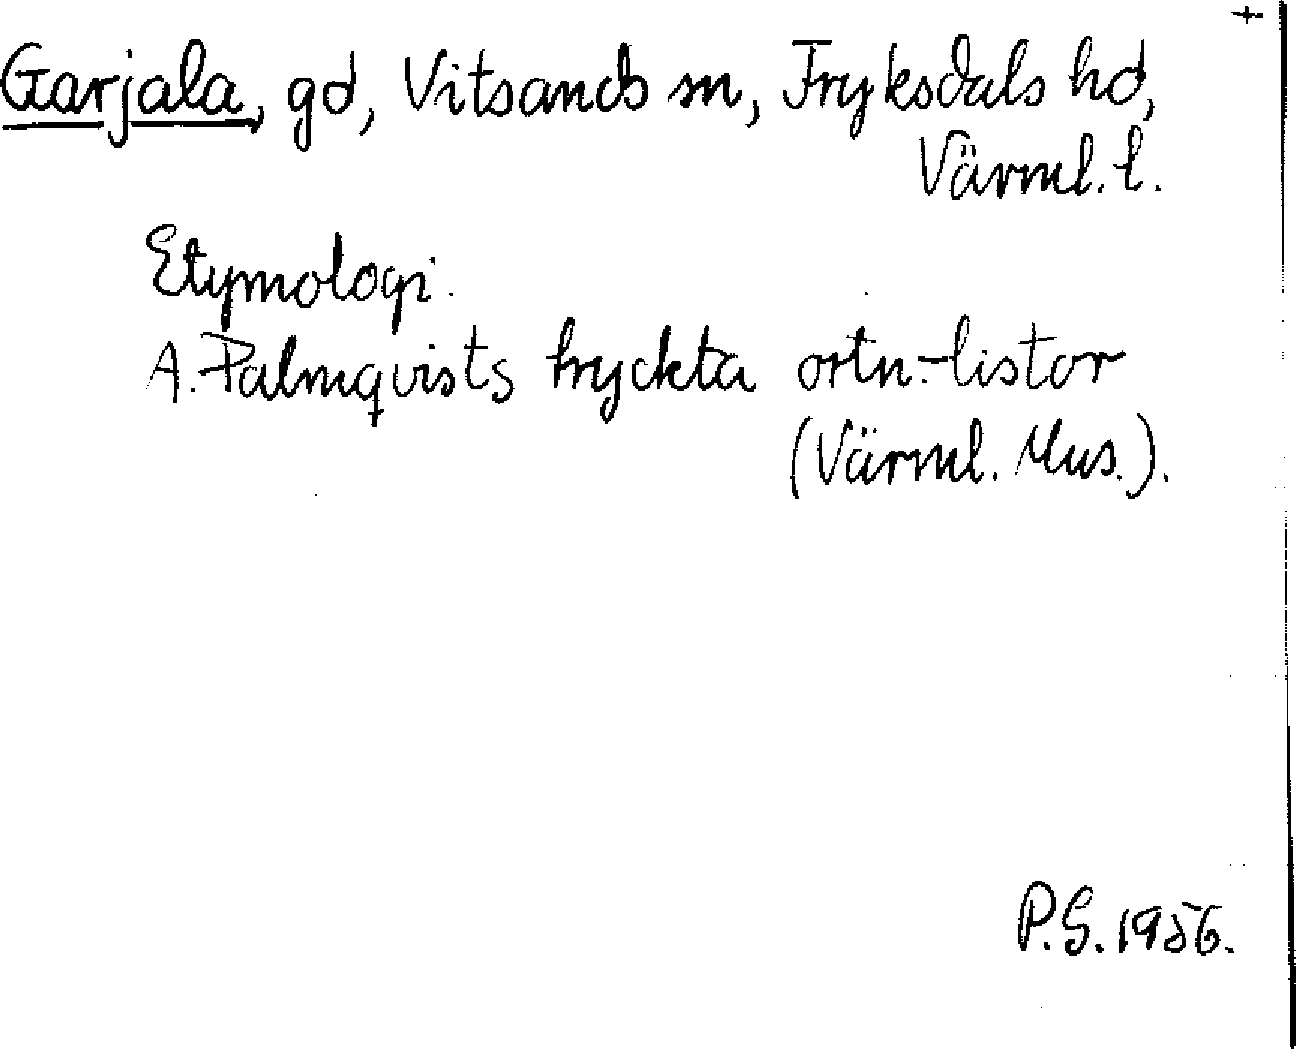 +
Garjala, gd, Vitsands sn, Fryksdals hd,
Värml. l.
Etymologi.
A. Palmqvists tryckta ortn.-listor
(Värml. Mus.).
P.G. 1956.